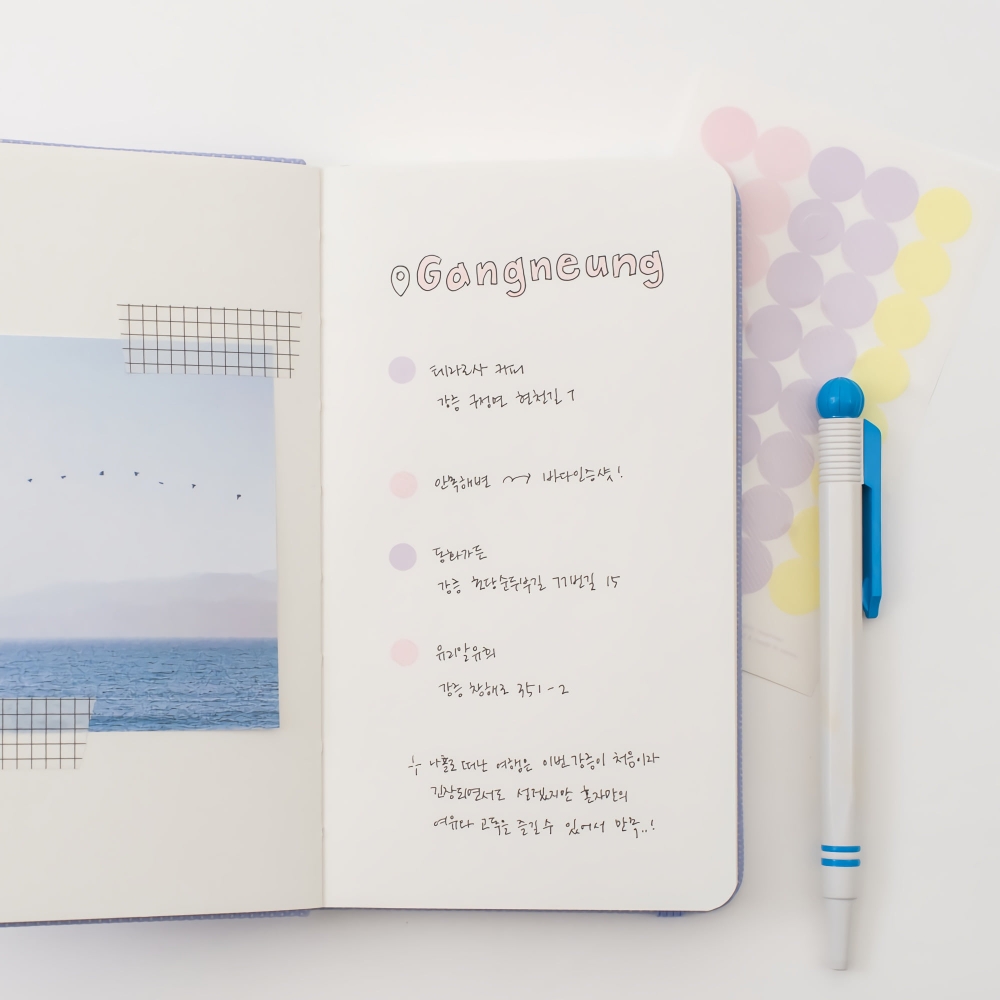 Gangneung
테라로사 커피
강릉 구정면 현천길 7
안목해변 ~> 바다인증샷!
동화가든
강릉 초당순두부길 77번길 15
유리알유희
강릉 창해로 351-2
나홀로 떠난 여행은 이번 강릉이 처음이라
긴장되면서도 설렜지만 혼자만의
여유와 고독을 즐길 수 있어서 만족..!